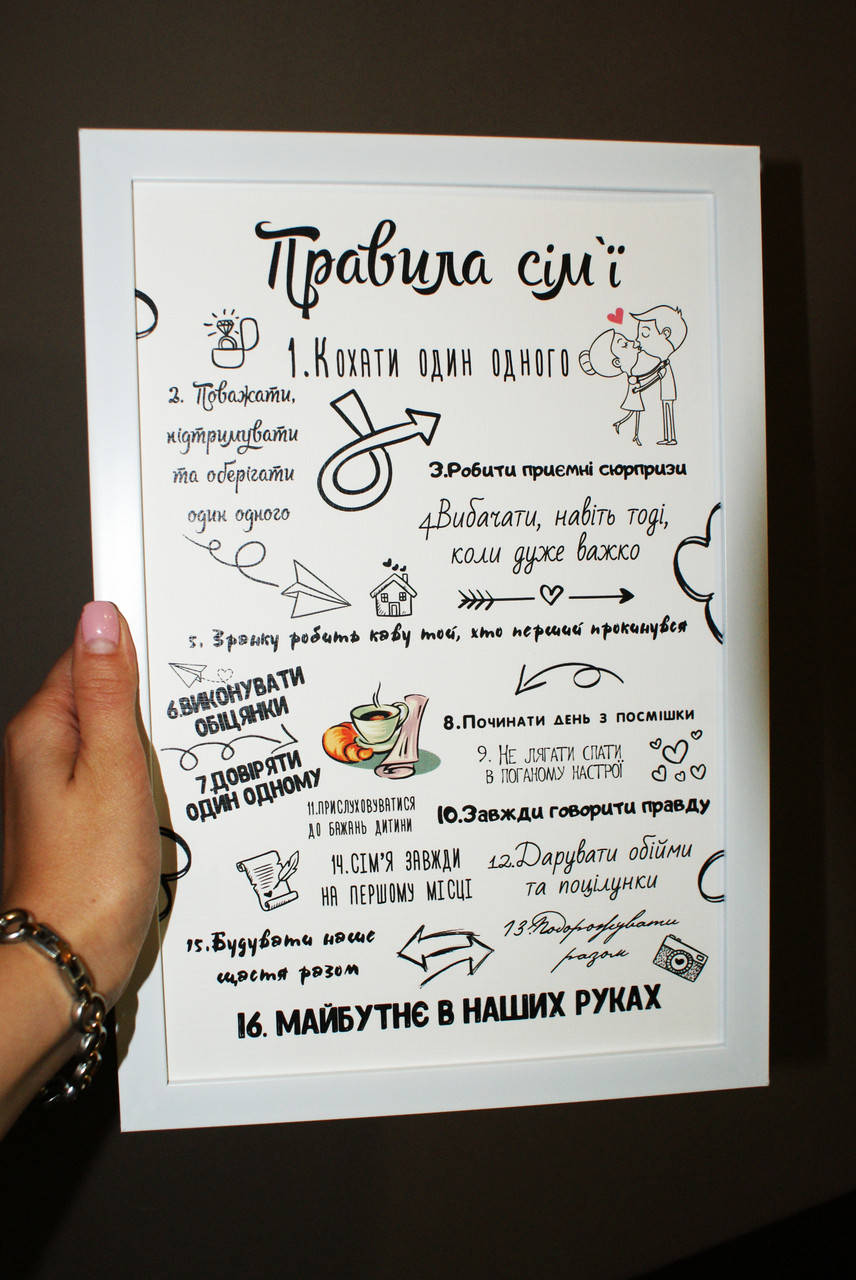 Правила сім`ї
1.Кохати один одного
2. Поважати,
підтримувати
та оберігати
один одного
3.Робити приємні сюрпризи
4.Вибачати, навіть тоді,
коли дуже важко
5. Зранку робить каву той, хто перший прокинувся
6.ВИКОНУВАТИ
ОБІЦЯНКИ
7.ДОВІРЯТИ
ОДИН ОДНОМУ
8.Починати день з посмішки
9. Не лягати спати
в поганому настрої
10.Завжди говорити правду
11.Прислуховуватися
до бажань дитини
12.Дарувати обійми
та поцілунки
13.Подорожувати
разом
14.Сім’я завжди
на першому місці
15.Будувати наше
щастя разом
16. МАЙБУТНЄ В НАШИХ РУКАХ